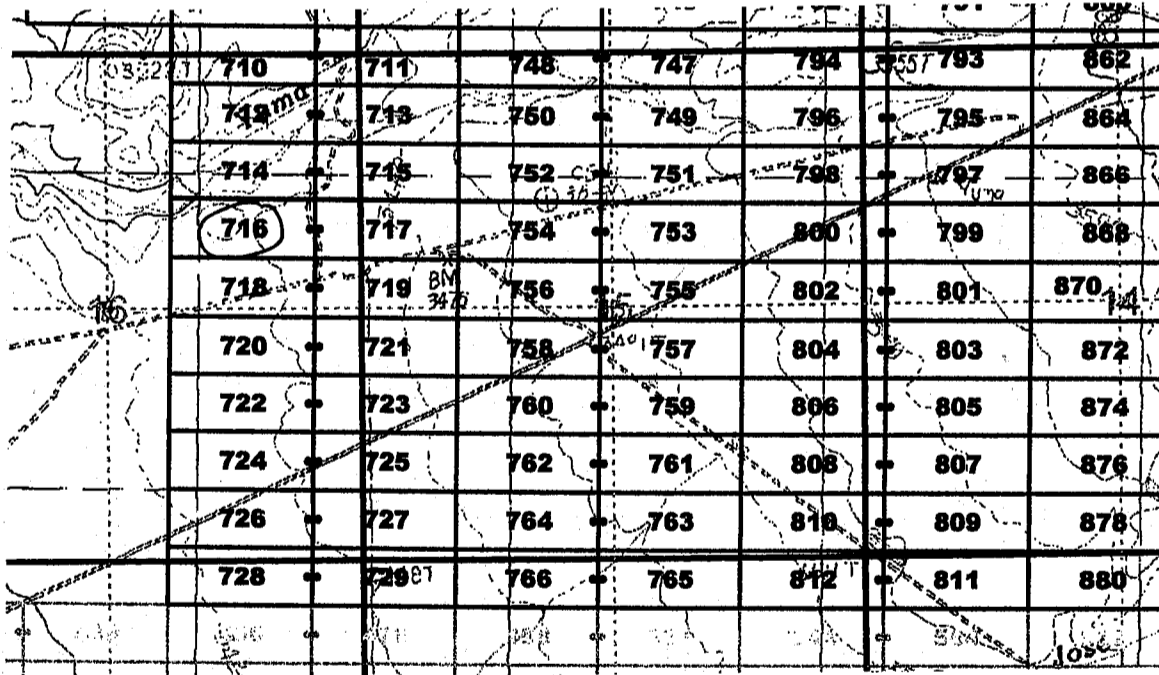 710 711 748 747 794 793 862
712 713 750 749 796 795 864
714 715 752 751 798 797 866
716 717 754 753 800 799 868
718 719 BM 3476 756 755 802 801 870 14
16 15
720 721 758 757 804 803 872
722 723 760 759 806 805 874
724 725 762 761 808 807 876
726 727 764 763 810 809 878
728 729 766 765 812 811 880
Jose